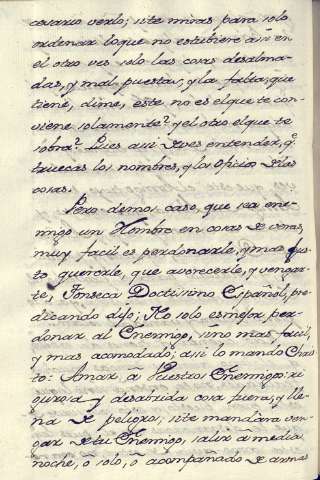 cesario verlo; si te miras para solo
ordenar lo que no estubiere asi en
el otro ves solo las cosas desalma-
das, y mal puestas, y la falta, que
tiene, dime, este no es el que te con-
viene solamente? y el otro el que te
sobra? Pues asi deves entender, q.e
truecas los nombres, y los oficios de las
cosas.
Pero demos caso, que sea ene-
migo un Hombre en cosas de veras,
muy facil es perdonarle, y mas jus-
to quererle, que avorecerle, y vengar-
te, Fonseca Doctisimo Español, pre-
dicando dijo; No solo es mejor per-
donar al Enemigo, sino mas facil,
y mas acomodado; asi lo mando Chris-
to: Amar â Vuestros Enemigos: ri
gurosa y desabrida cosa fuera, y lle-
na de peligro; si te mandâra ven-
gar de tu Enemigo, salir â media
noche, ô solo, ô acompañado de armas